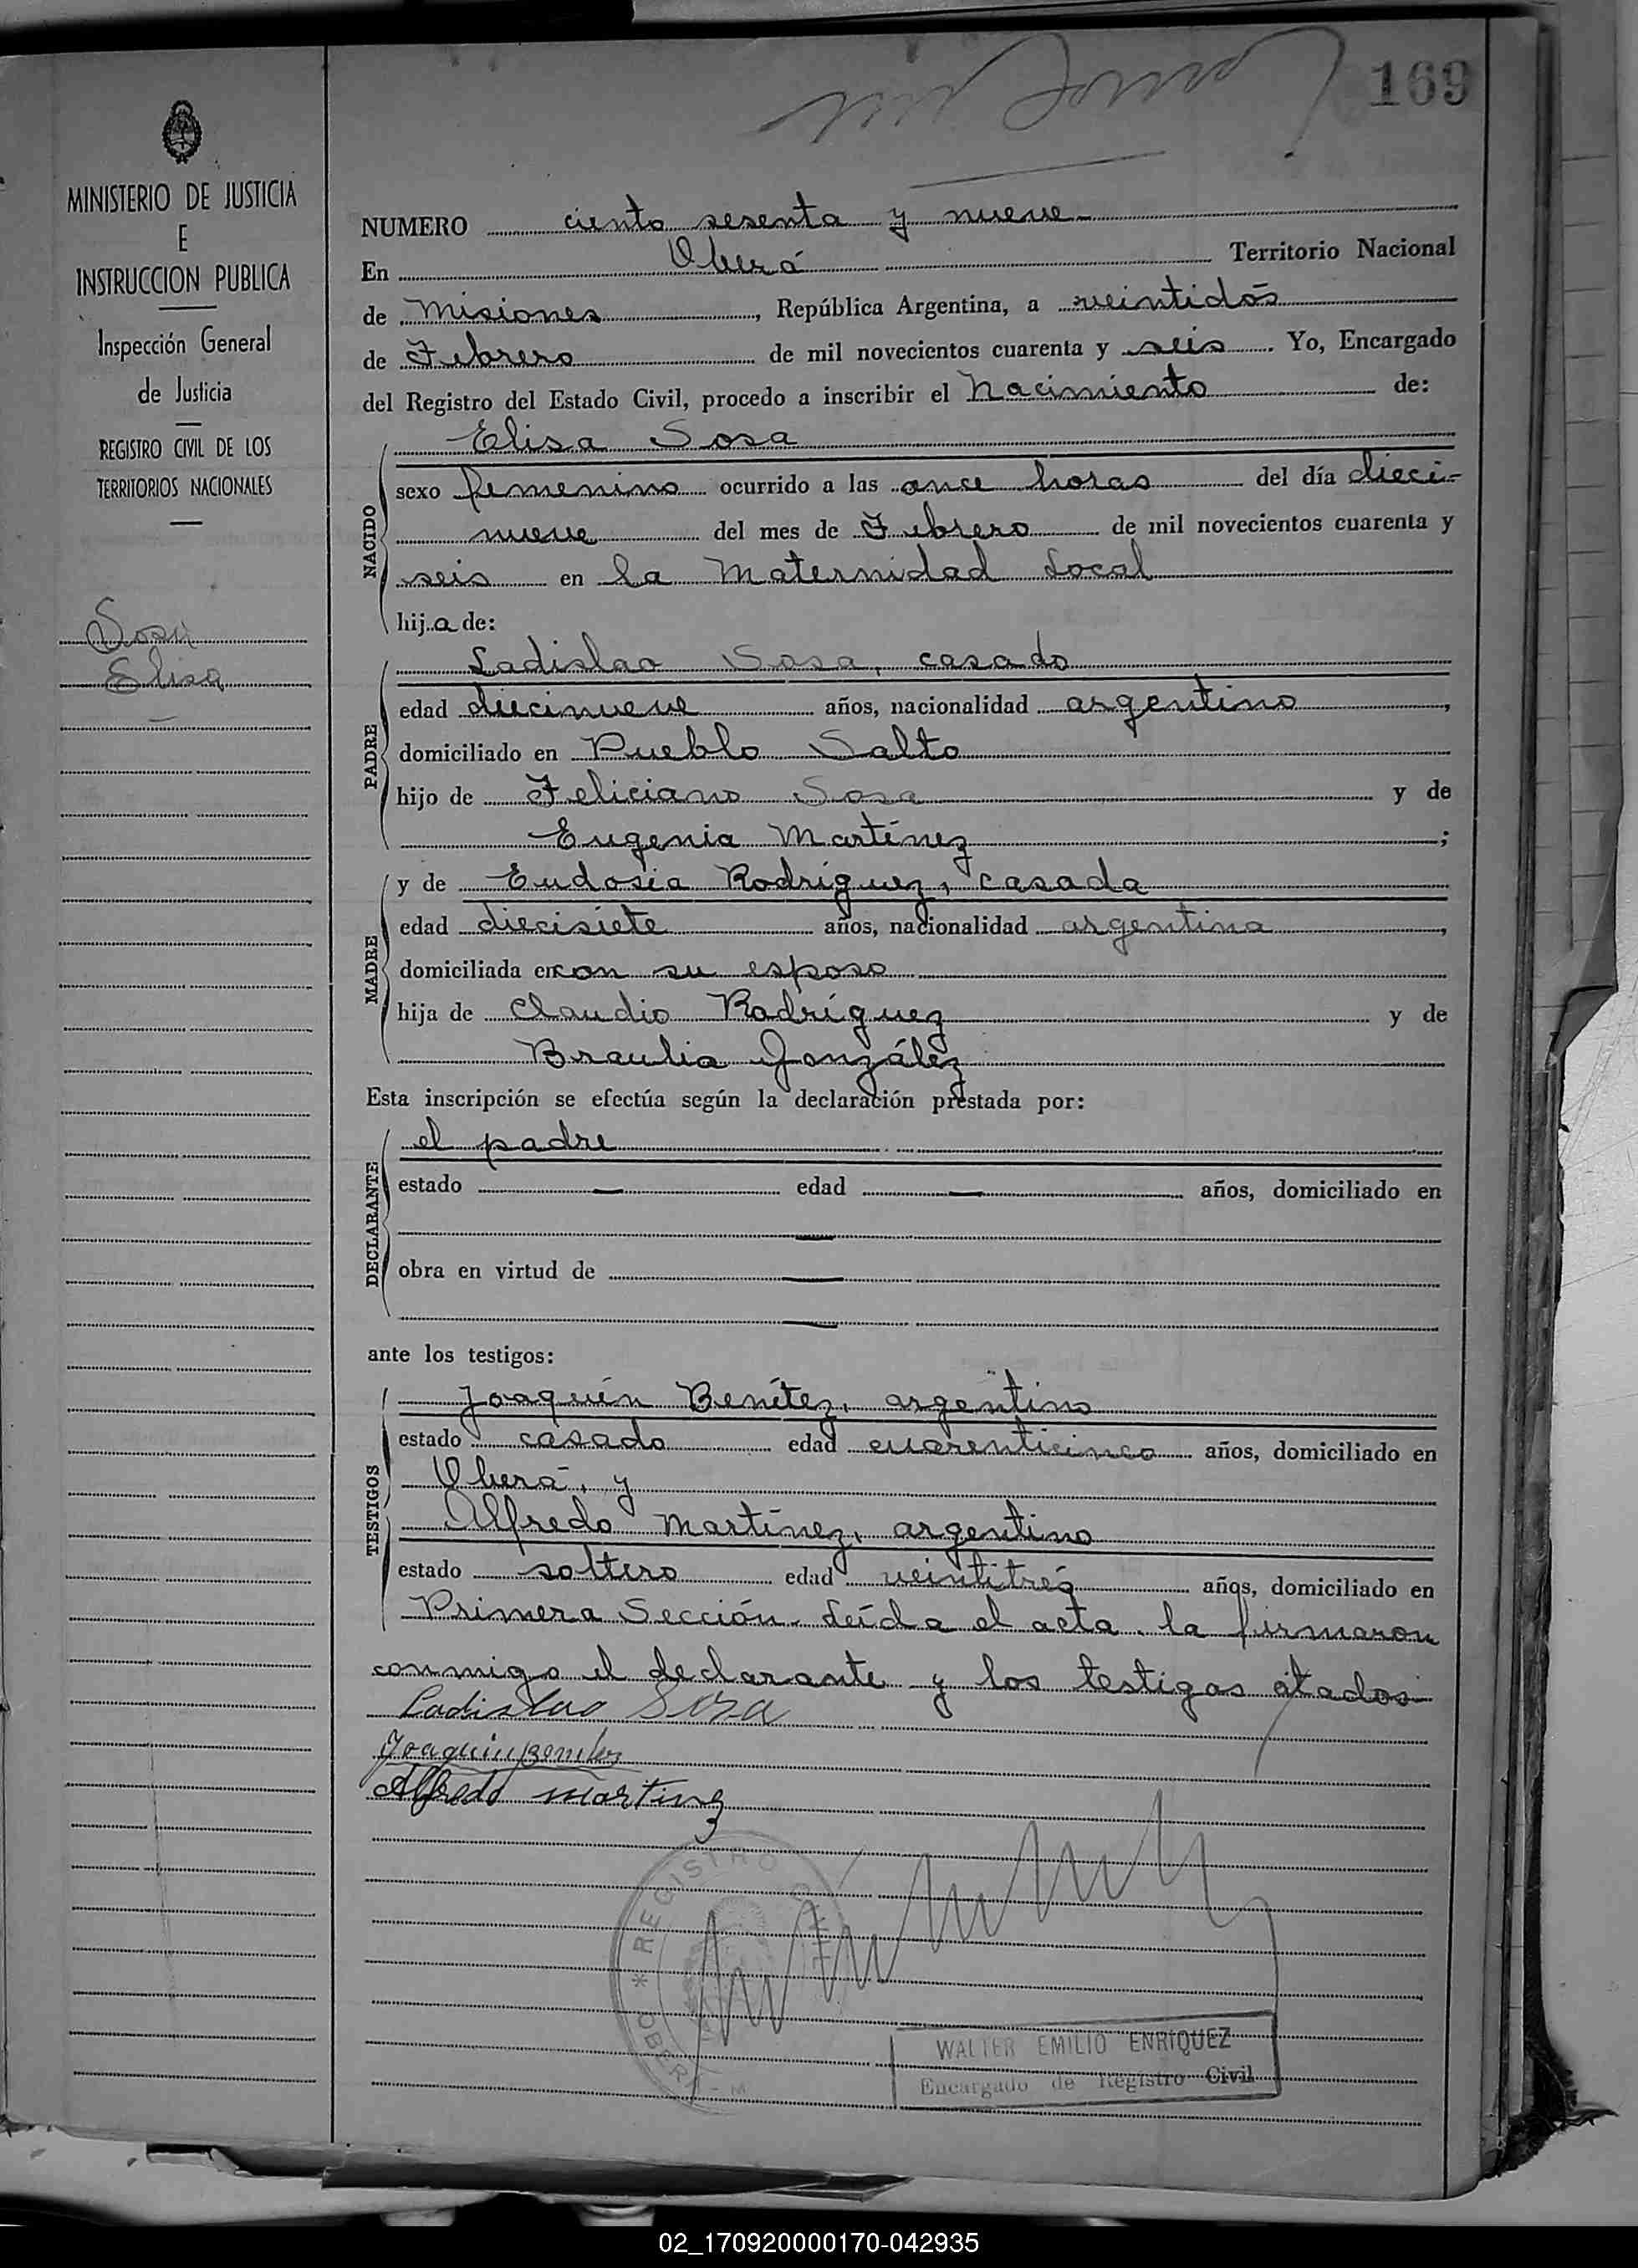 169
MINISTERIO DE JUSTICIA
E
INSTRUCCION PUBLICA
Inspección General
de Justicia
REGISTRO CIVIL DE LOS
TERRITORIOS NACIONALES
Sosa
Elisa
NUMERO ciento sesenta y nueve
En Oberá Territorio Nacional
de Misiones, República Argentina, a veintidós
de Febrero de mil novecientos cuarenta y seis. Yo, Encargado
del Registro del Estado Civil, procedo a inscribir el Nacimiento de:
NACIDO
Elisa Sosa
sexo femenino ocurrido a las once horas del día dieci-
nueve del mes de Febrero de mil novecientos cuarenta y
seis en la Maternidad Local
hij a de:
PADRE
Ladislao Sosa, casado
edad diecinueve años, nacionalidad argentino,
domiciliado en Pueblo Salto
hijo de Feliciano Sosa y de
Eugenia Martínez;
MADRE
y de Eudosia Rodríguez, casada
edad diecisiete años, nacionalidad argentina,
domiciliada en con su esposo
hija de Claudio Rodríguez y de
Braulia González
Esta inscripción se efectúa según la declaración prestada por:
DECLARANTE
el padre
estado — edad — años, domiciliado en
—
obra en virtud de —
—
ante los testigos:
TESTIGOS
Joaquín Benítez, argentino
estado casado edad cuarenticinco años, domiciliado en
Oberá, y
Alfredo Martínez, argentino
estado soltero edad veintitrés años, domiciliado en
Primera Sección. Leída el acta, la firmaron
conmigo el declarante y los testigos citados
Ladislao Sosa
Joaquin Benites
Alfredo Martinz
* REGISTRO CIVIL
OBERA - M
WALTER EMILIO ENRIQUEZ
Encargado de Registro Civil
02_170920000170-042935